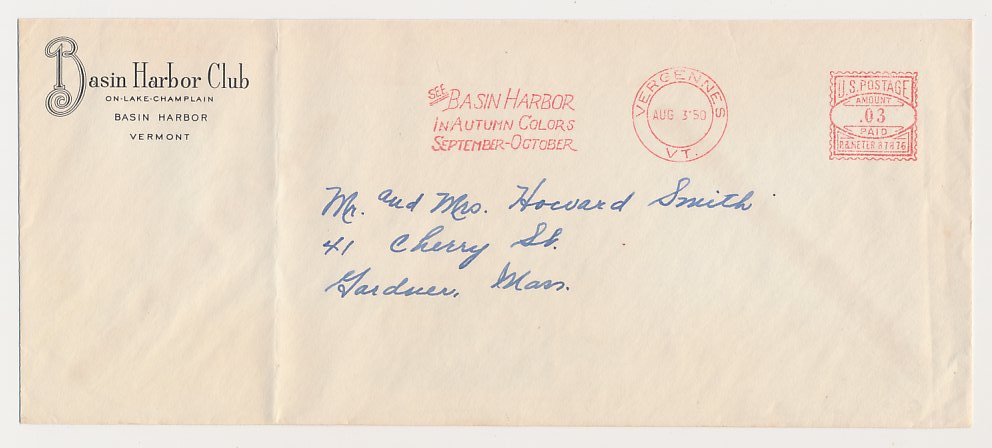 Basin Harbor Club
ON·LAKE·CHAMPLAIN
BASIN HARBOR
VERMONT
SEE BASIN HARBOR
IN AUTUMN COLORS
SEPTEMBER-OCTOBER
VERGENNES
AUG 3'50
VT.
U.S. POSTAGE
AMOUNT
.03
PAID
P.B. METER 87876
Mr. and Mrs. Howard Smith
41 Cherry St.
Gardner, Mass.